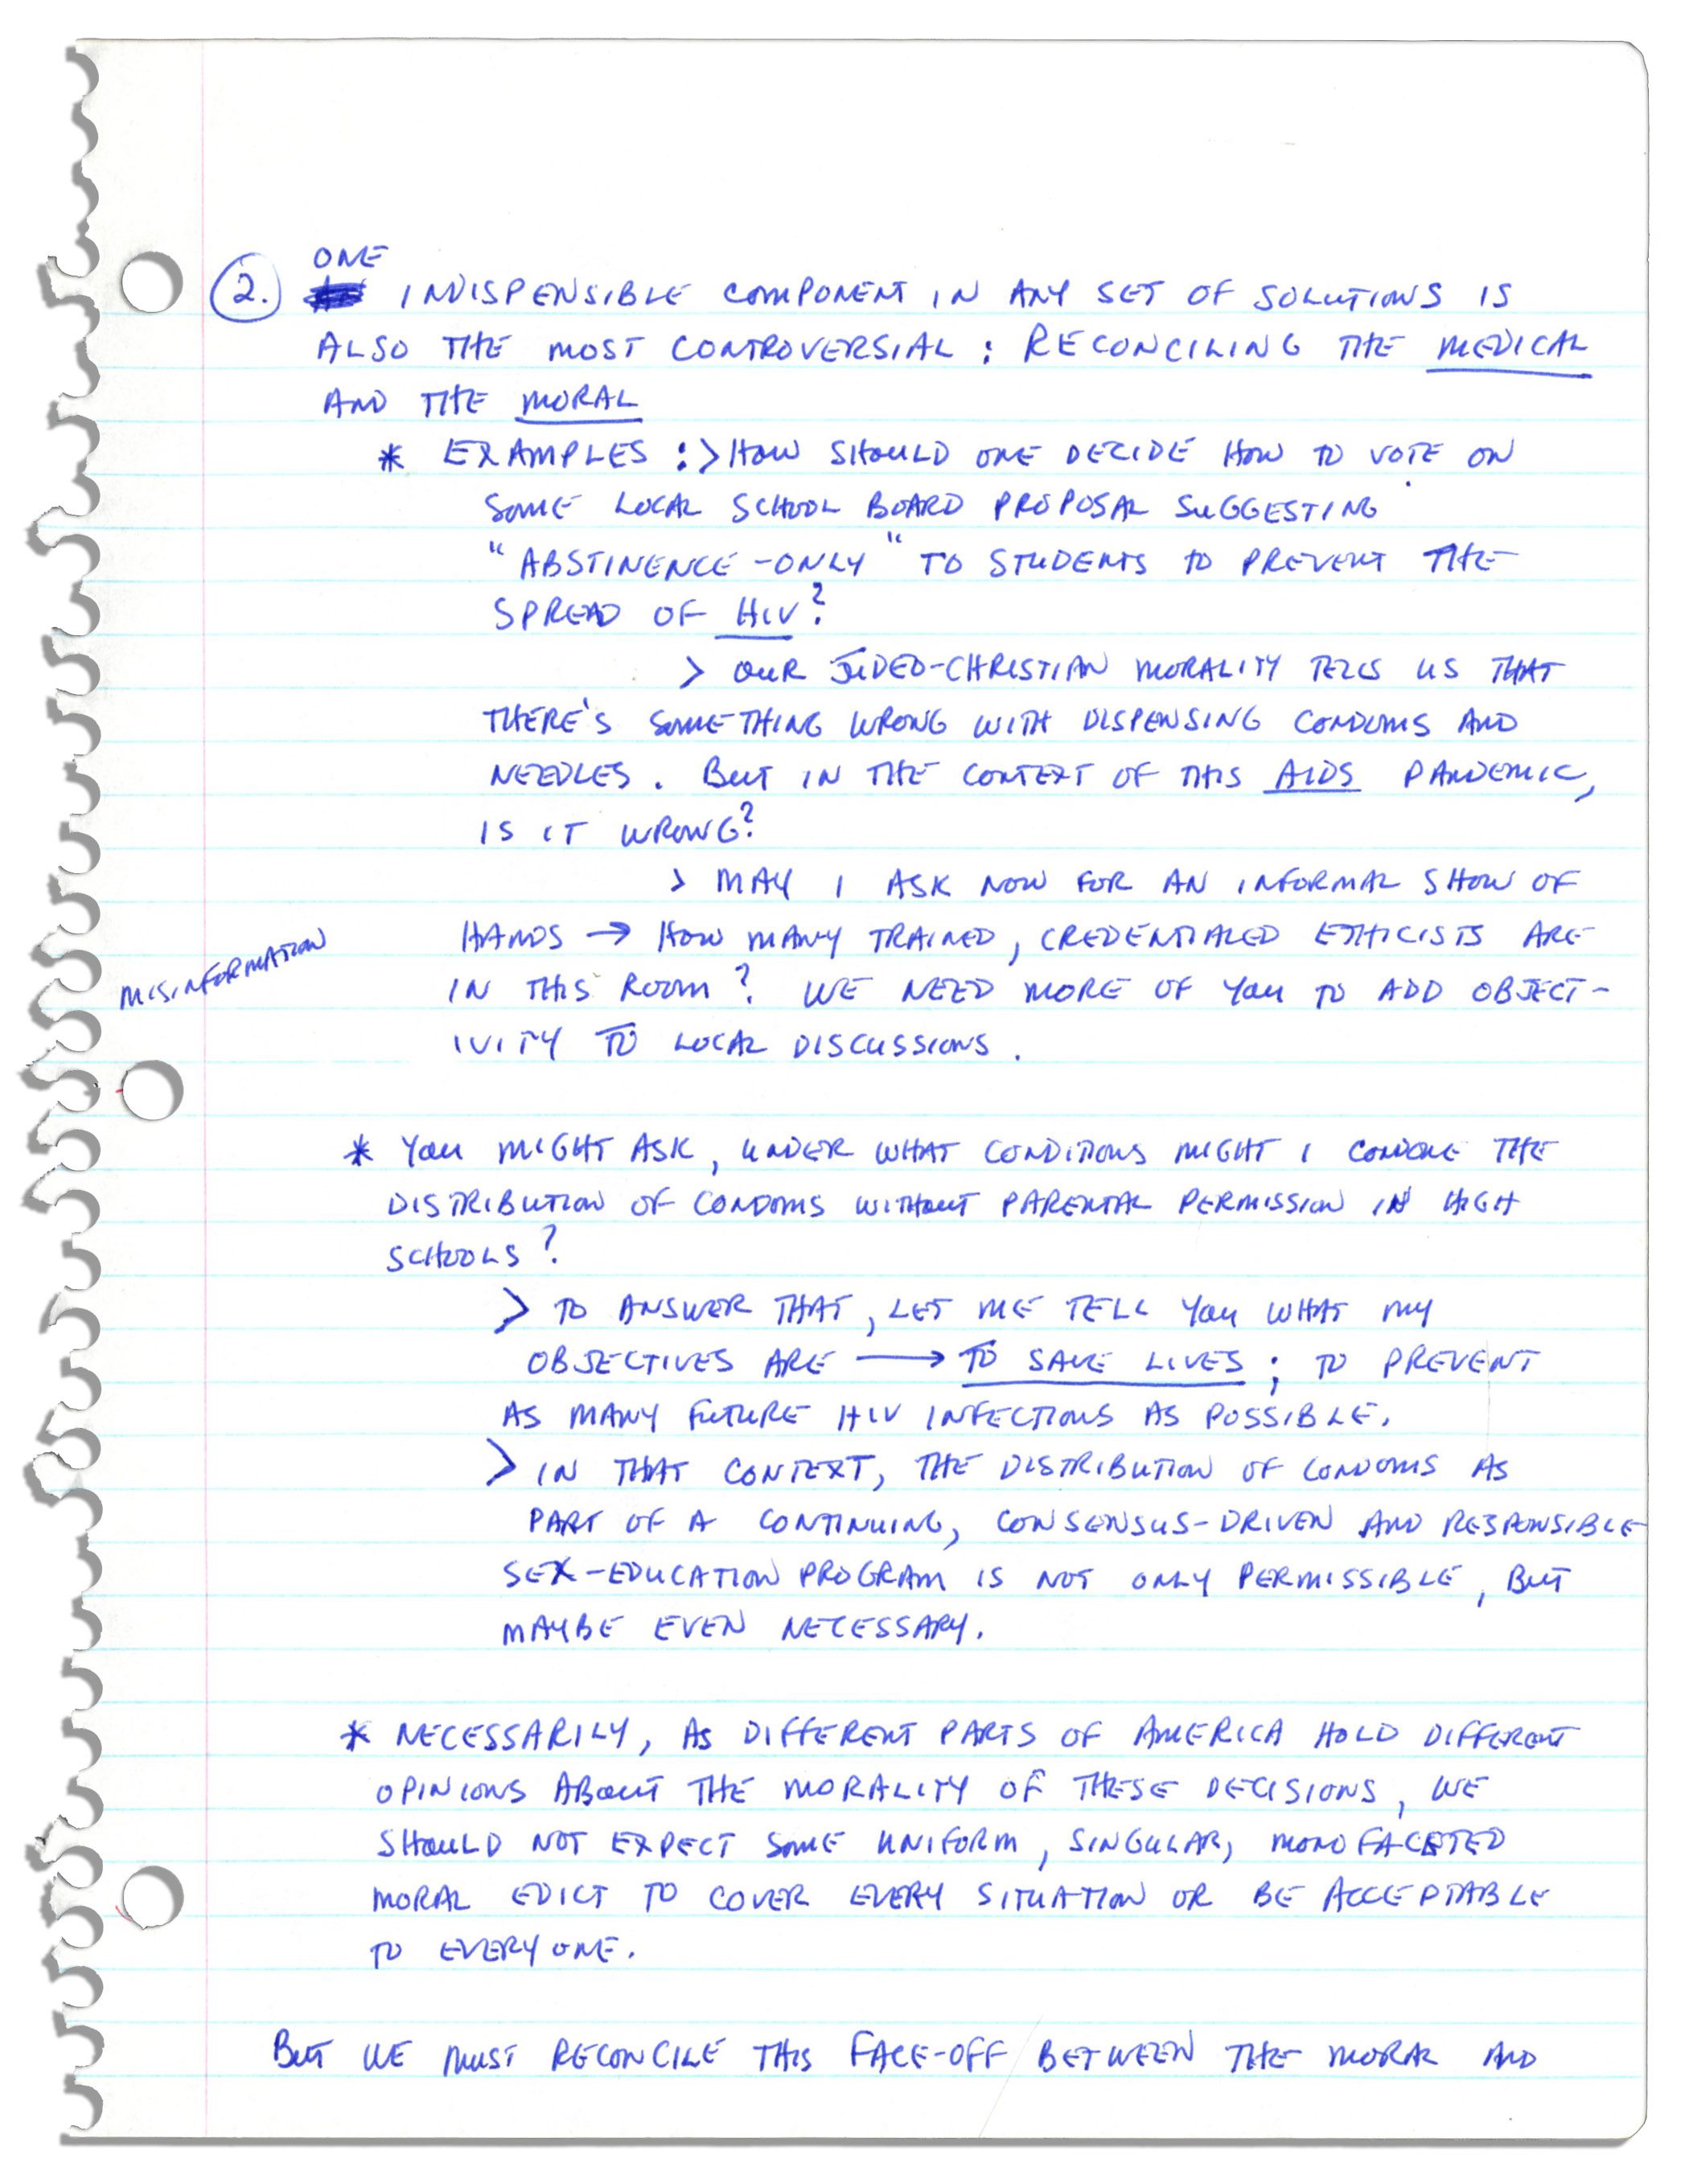 ONE
2. INDISPENSIBLE COMPONENT IN ANY SET OF SOLUTIONS IS
ALSO THE MOST CONTROVERSIAL : RECONCILING THE MEDICAL
AND THE MORAL
* EXAMPLES : > HOW SHOULD ONE DECIDE HOW TO VOTE ON
SOME LOCAL SCHOOL BOARD PROPOSAL SUGGESTING
"ABSTINENCE-ONLY" TO STUDENTS TO PREVENT THE
SPREAD OF HIV?
> OUR JUDEO-CHRISTIAN MORALITY TELLS US THAT
THERE'S SOMETHING WRONG WITH DISPENSING CONDOMS AND
NEEDLES. BUT IN THE CONTEXT OF THIS AIDS PANDEMIC,
IS IT WRONG?
> MAY I ASK NOW FOR AN INFORMAL SHOW OF
HANDS → HOW MANY TRAINED, CREDENTIALED ETHICISTS ARE
MISINFORMATION
IN THIS ROOM? WE NEED MORE OF YOU TO ADD OBJECT-
IVITY TO LOCAL DISCUSSIONS.
* YOU MIGHT ASK, UNDER WHAT CONDITIONS MIGHT I CONDONE THE
DISTRIBUTION OF CONDOMS WITHOUT PARENTAL PERMISSION IN HIGH
SCHOOLS?
> TO ANSWER THAT, LET ME TELL YOU WHAT MY
OBJECTIVES ARE → TO SAVE LIVES; TO PREVENT
AS MANY FUTURE HIV INFECTIONS AS POSSIBLE.
> IN THAT CONTEXT, THE DISTRIBUTION OF CONDOMS AS
PART OF A CONTINUING, CONSENSUS-DRIVEN AND RESPONSIBLE
SEX-EDUCATION PROGRAM IS NOT ONLY PERMISSIBLE, BUT
MAYBE EVEN NECESSARY.
* NECESSARILY, AS DIFFERENT PARTS OF AMERICA HOLD DIFFERENT
OPINIONS ABOUT THE MORALITY OF THESE DECISIONS, WE
SHOULD NOT EXPECT SOME UNIFORM, SINGULAR, MONOFACETED
MORAL EDICT TO COVER EVERY SITUATION OR BE ACCEPTABLE
TO EVERYONE.
BUT WE MUST RECONCILE THIS FACE-OFF BETWEEN THE MORAL AND